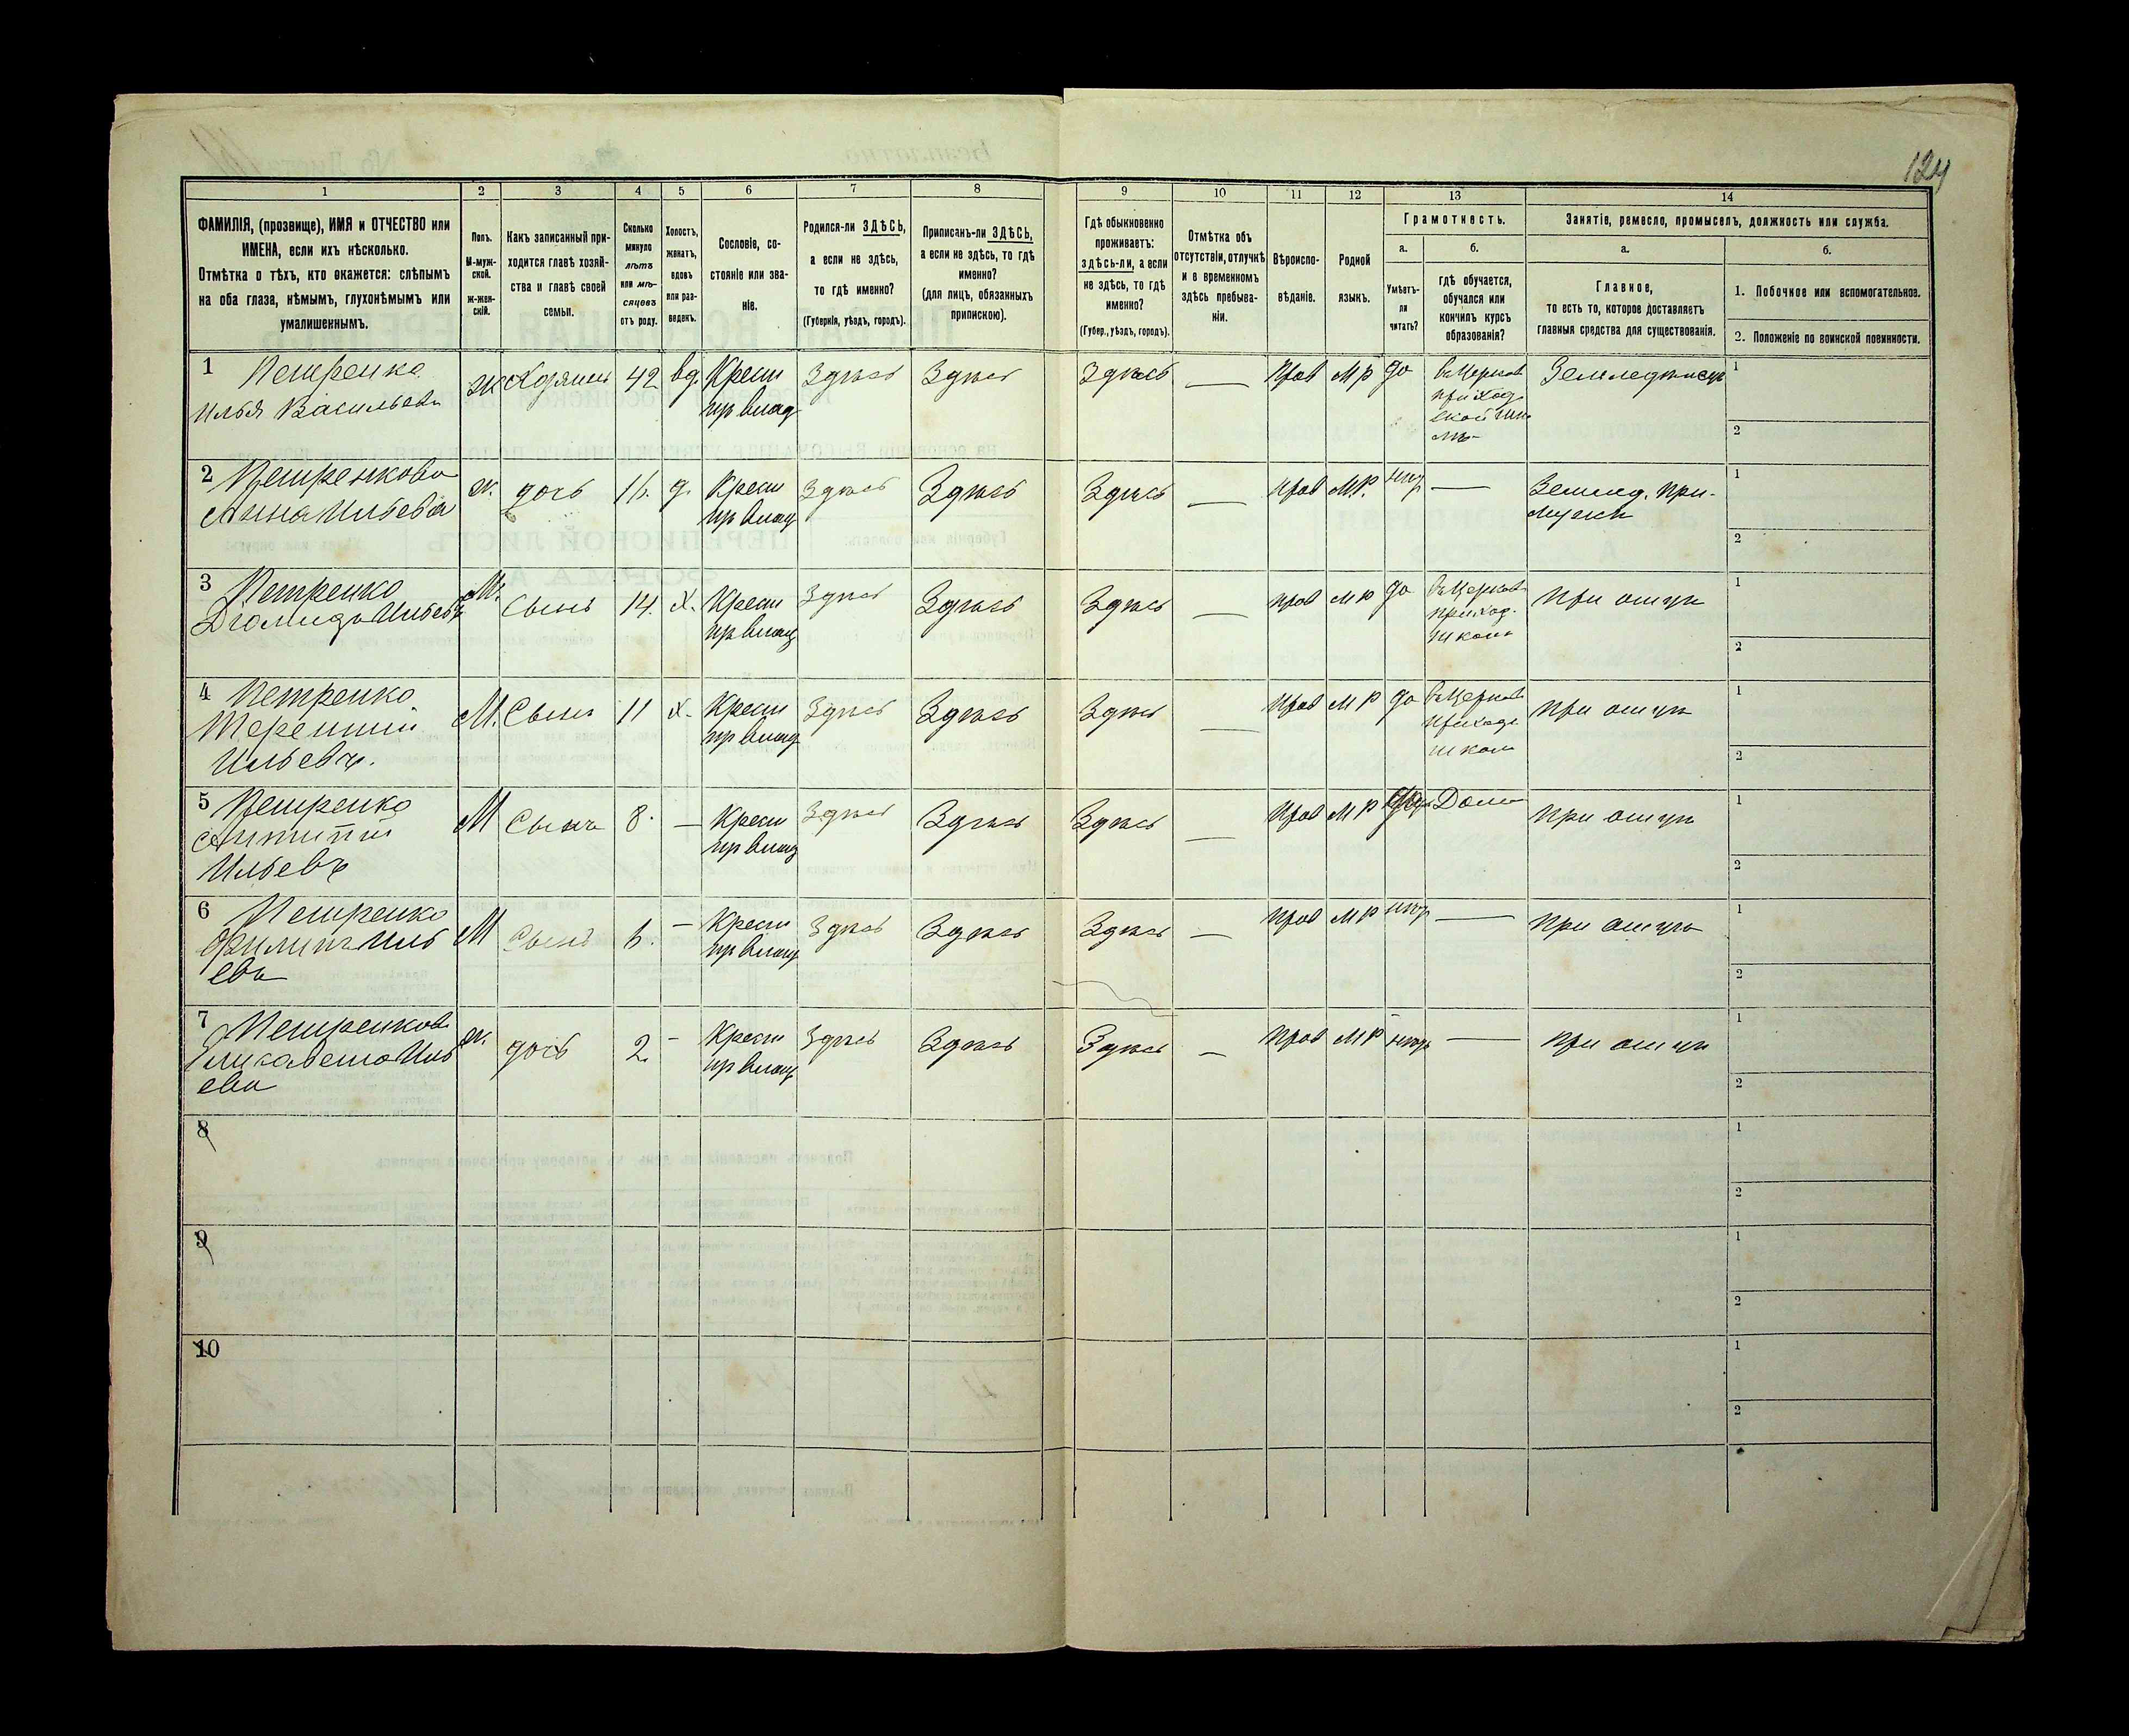 124
1 2 3 4 5 6 7 8 9 10 11 12 13 14
ФАМИЛІЯ, (прозвище), ИМЯ и ОТЧЕСТВО или
ИМЕНА, если ихъ нѣсколько.
Отмѣтка о тѣхъ, кто окажется: слѣпымъ
на оба глаза, нѣмымъ, глухонѣмымъ или
умалишеннымъ.
Полъ.
М-муж-
ской.
ж-жен-
скій.
Какъ записанный при-
ходится главѣ хозяй-
ства и главѣ своей
семьи.
Сколько
минуло
лѣтъ
или мѣ-
сяцовъ
отъ роду.
Холостъ,
женатъ,
вдовъ
или раз-
веденъ.
Сословіе, со-
стояніе или зва-
ніе.
Родился-ли ЗДѢСЬ,
а если не здѣсь,
то гдѣ именно?
(Губернія, уѣздъ, городъ).
Приписанъ-ли ЗДѢСЬ,
а если не здѣсь, то гдѣ
именно?
(для лицъ, обязанныхъ
припискою).
Гдѣ обыкновенно
проживаетъ:
здѣсь-ли, а если
не здѣсь, то гдѣ
именно?
(Губер., уѣздъ, городъ).
Отмѣтка объ
отсутствіи, отлучкѣ
и о временномъ
здѣсь пребыва-
ніи.
Вѣроиспо-
вѣданіе.
Родной
языкъ.
Грамотность.
а.
Умѣетъ-
ли
читать?
б.
гдѣ обучается,
обучался или
кончилъ курсъ
образованія?
Занятіе, ремесло, промыселъ, должность или служба.
а.
Главное,
то есть то, которое доставляетъ
главныя средства для существованія.
б.
1. Побочное или вспомогательное.
2. Положеніе по воинской повинности.
1 Петренко
Илья Васильевъ
Хозяинъ 42 вд. Крест
пр влад
Здѣсь Здѣсь Здѣсь — Прав М р да
въ Церков
приход
ской шко
лѣ
Земледѣлецъ
1
2
2 Петренкова
Анна Ильева
ж. дочь 16. д. Крест
пр влад
Здѣсь Здѣсь Здѣсь — Прав М Р. нѣт —
Землед. при-
1
2
3 Петренко
Діомидъ Ильевъ
М. Сынъ 14. х. Крест
пр влад
Здѣсь Здѣсь Здѣсь — прав М р да
въ Церков
приход.
школѣ
при отцѣ
1
2
4 Петренко
Терентій
Ильевъ.
М. Сынъ 11 х. Крест
пр влад
Здѣсь Здѣсь Здѣсь — Прав М р да
въ Церков
приход
школ
при отцѣ
1
2
5 Петренко
Антипій
Ильевъ
М Сынъ 8. — Крест
пр влад
Здѣсь Здѣсь Здѣсь — Прав М р Дома
при отцѣ
1
2
6 Петренко
Филипъ Иль
евъ
М Сынъ 6. — Крест
пр влад
Здѣсь Здѣсь Здѣсь — Прав М р нѣт —
при отцѣ
1
2
7 Петренкова
Елисавета Иль
ева
ж. дочь 2. — Крест
пр влад
Здѣсь Здѣсь Здѣсь — Прав М р нѣтъ —
при отцѣ
1
2
8
1
2
9
1
2
10
1
2